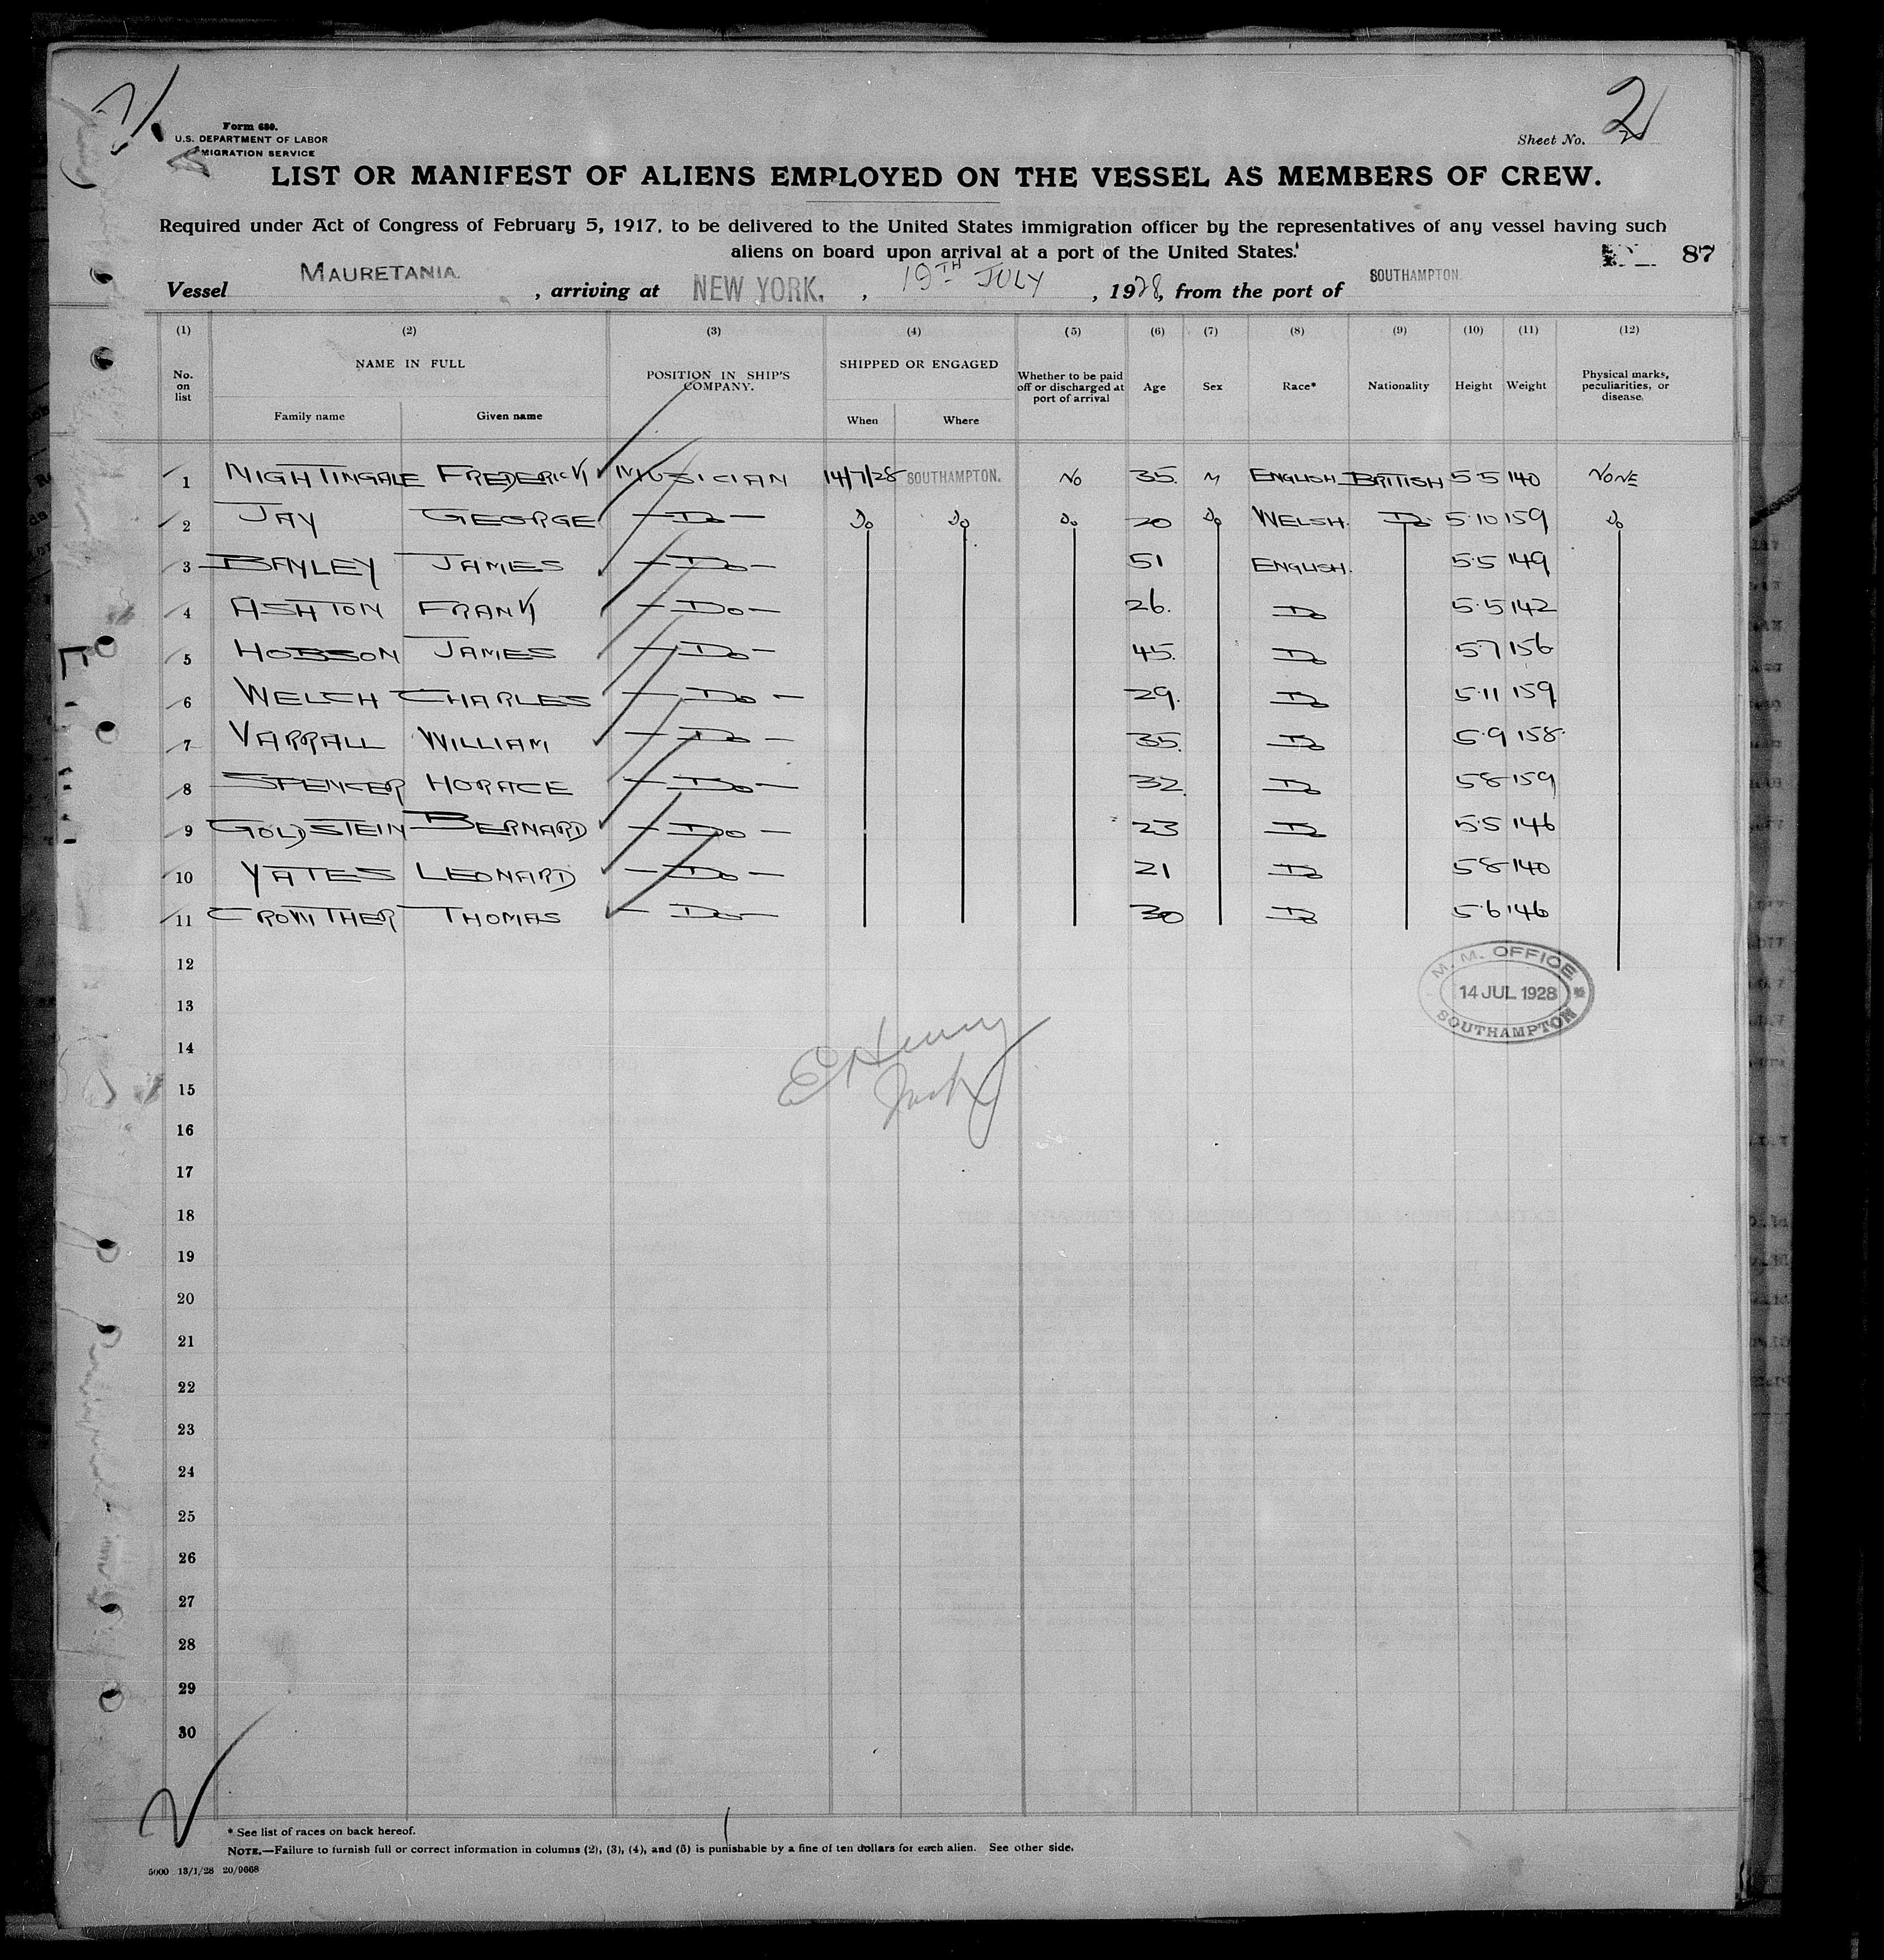 Form 680.
U.S. DEPARTMENT OF LABOR
MIGRATION SERVICE
Sheet No. 2
LIST OR MANIFEST OF ALIENS EMPLOYED ON THE VESSEL AS MEMBERS OF CREW.
Required under Act of Congress of February 5, 1917, to be delivered to the United States immigration officer by the representatives of any vessel having such
aliens on board upon arrival at a port of the United States.
87
Vessel MAURETANIA, arriving at NEW YORK, 19TH JULY, 1928, from the port of SOUTHAMPTON.
(1) (2) (3) (4) (5) (6) (7) (8) (9) (10) (11) (12)
No. on list NAME IN FULL POSITION IN SHIP'S COMPANY. SHIPPED OR ENGAGED Whether to be paid off or discharged at port of arrival Age Sex Race* Nationality Height Weight Physical marks, peculiarities, or disease.
Family name Given name When Where
1 NIGHTINGALE FREDERICK MUSICIAN 14/7/28 SOUTHAMPTON. NO 35. M ENGLISH BRITISH 5·5 140 NONE
2 JAY GEORGE —Do— Do Do Do 20 Do WELSH. Do 5·10 159 Do
3 BAYLEY JAMES —Do— 51 ENGLISH. 5·5 149
4 ASHTON FRANK —Do— 26. Do 5·5 142
5 HOBSON JAMES —Do— 45. Do 5·7 156
6 WELCH CHARLES —Do— 29. Do 5·11 159
7 VARRALL WILLIAM —Do— 35. Do 5·9 158·
8 SPENCER HORACE —Do— 32. Do 5·8 159
9 GOLDSTEIN BERNARD —Do— 23 Do 5·5 146
10 YATES LEONARD —Do— 21 Do 5·8 140
11 CROWTHER THOMAS —Do— 30 Do 5·6 146
12
M. M. OFFICE
14 JUL 1928
SOUTHAMPTON
13
14
E Henry
15
16
17
18
19
20
21
22
23
24
25
26
27
28
29
30
* See list of races on back hereof.
NOTE.—Failure to furnish full or correct information in columns (2), (3), (4), and (5) is punishable by a fine of ten dollars for each alien. See other side.
5000 13/1/28 20/9668